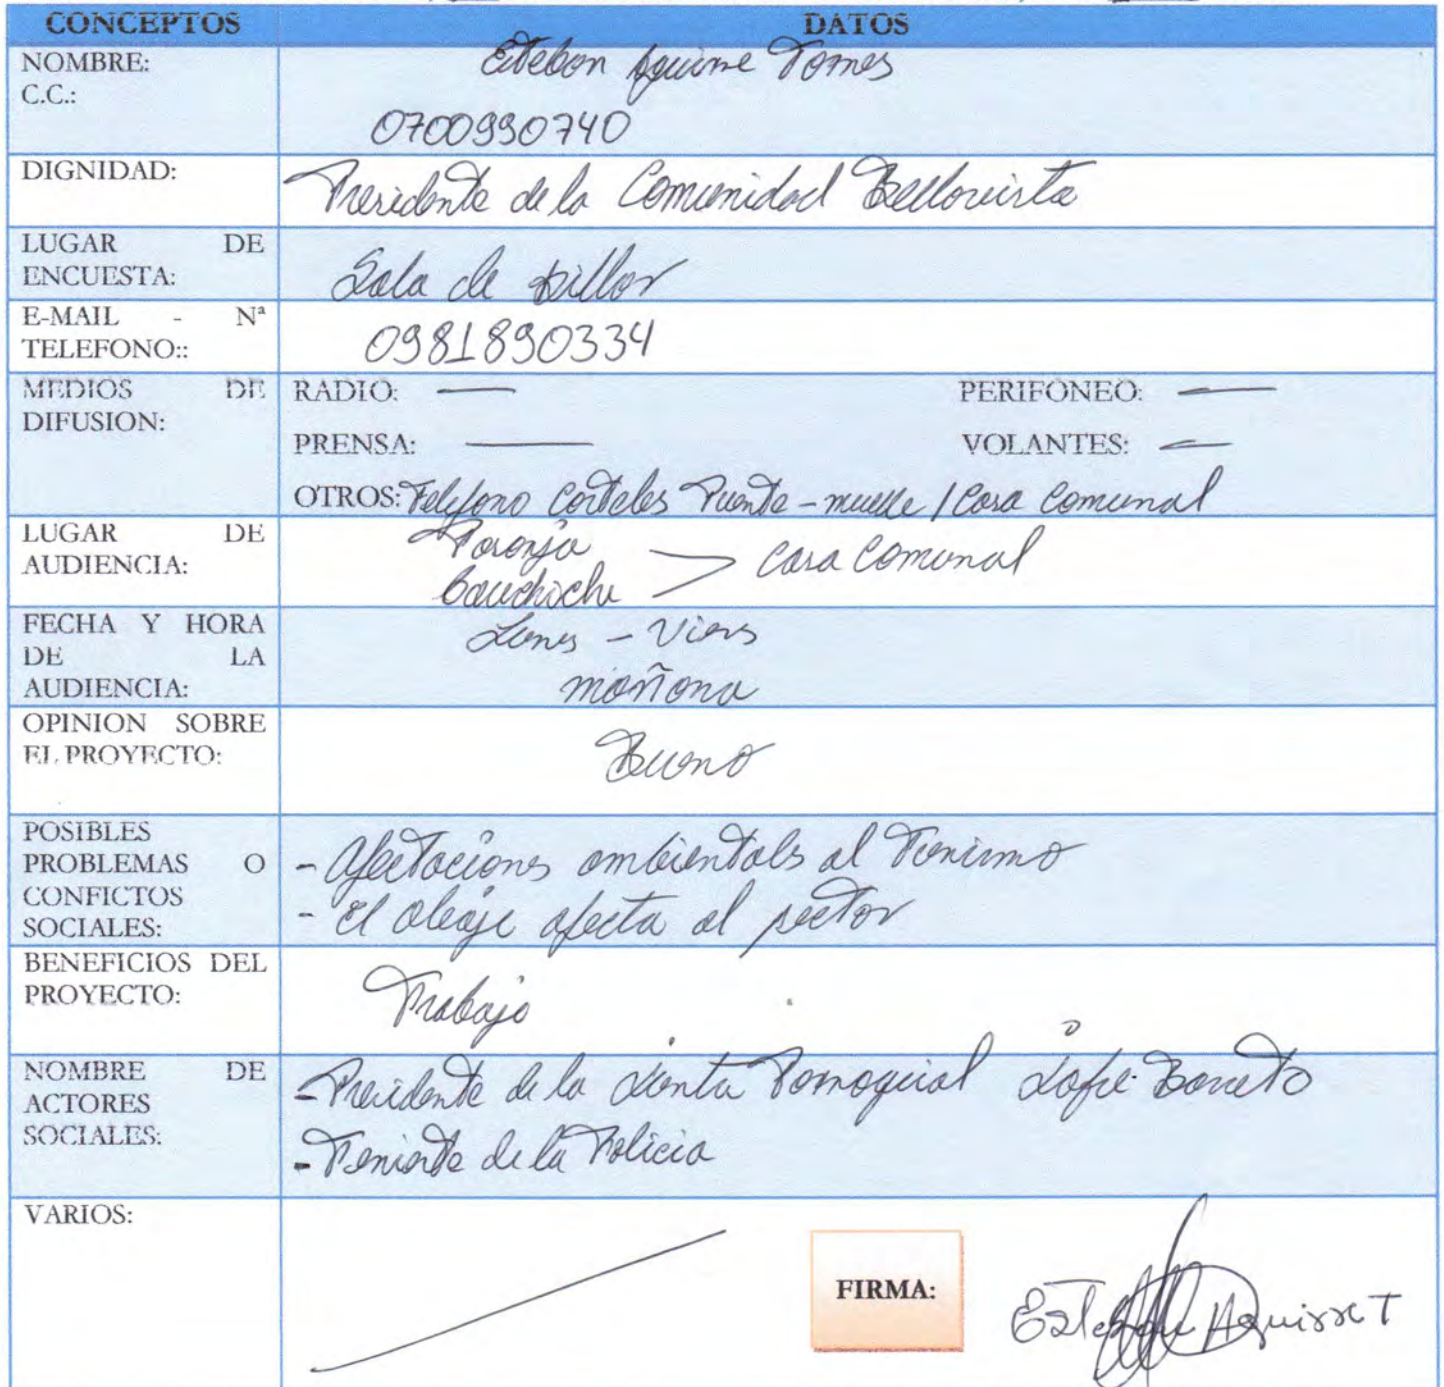 CONCEPTOS DATOS
NOMBRE: Esteban Aguirre Torres
C.C.: 0700990740
DIGNIDAD: Presidente de la Comunidad Bellavista
LUGAR DE
ENCUESTA: Sala de
E-MAIL - Nª
TELEFONO:: 0981890334
MEDIOS DE
DIFUSION:
RADIO: — PERIFONEO: —
PRENSA: — VOLANTES: —
OTROS: Telefono Carteles Puente - muelle / Casa Comunal
LUGAR DE
AUDIENCIA:
> Casa Comunal
FECHA Y HORA
DE LA
AUDIENCIA:
Lunes - Viers
mañana
OPINION SOBRE
EL PROYECTO: Bueno
POSIBLES
PROBLEMAS O
CONFICTOS
SOCIALES:
- Afectaciones ambientals al Turismo
- El oleaje afecta al sector
BENEFICIOS DEL
PROYECTO: Trabajo
NOMBRE DE
ACTORES
SOCIALES:
- Presidente de la Junta Parroquial
- Teniente de la Policia
VARIOS:
FIRMA: Esteban Aguirre T